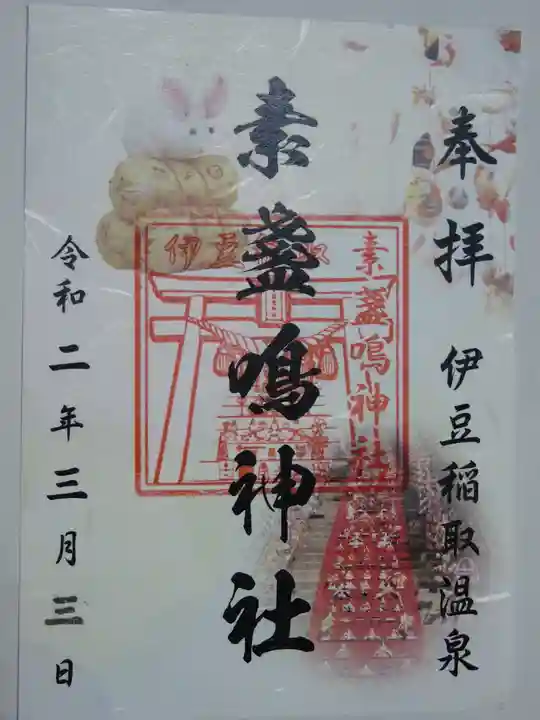 奉拝 伊豆稲取温泉
素盞鳴神社
令和二年三月三日
伊豆稲取
素盞鳴神社